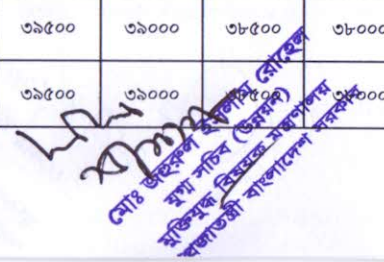 ৩৯৫০০ ৩৯০০০ ৩৮৫০০ ৩৮০০০
৩৯৫০০ ৩৯০০০
মোঃ জহুরুল ইসলাম রোহেল
যুগ্ম সচিব (উন্নয়ন)
মুক্তিযুদ্ধ বিষয়ক মন্ত্রণালয়
গণপ্রজাতন্ত্রী বাংলাদেশ সরকার